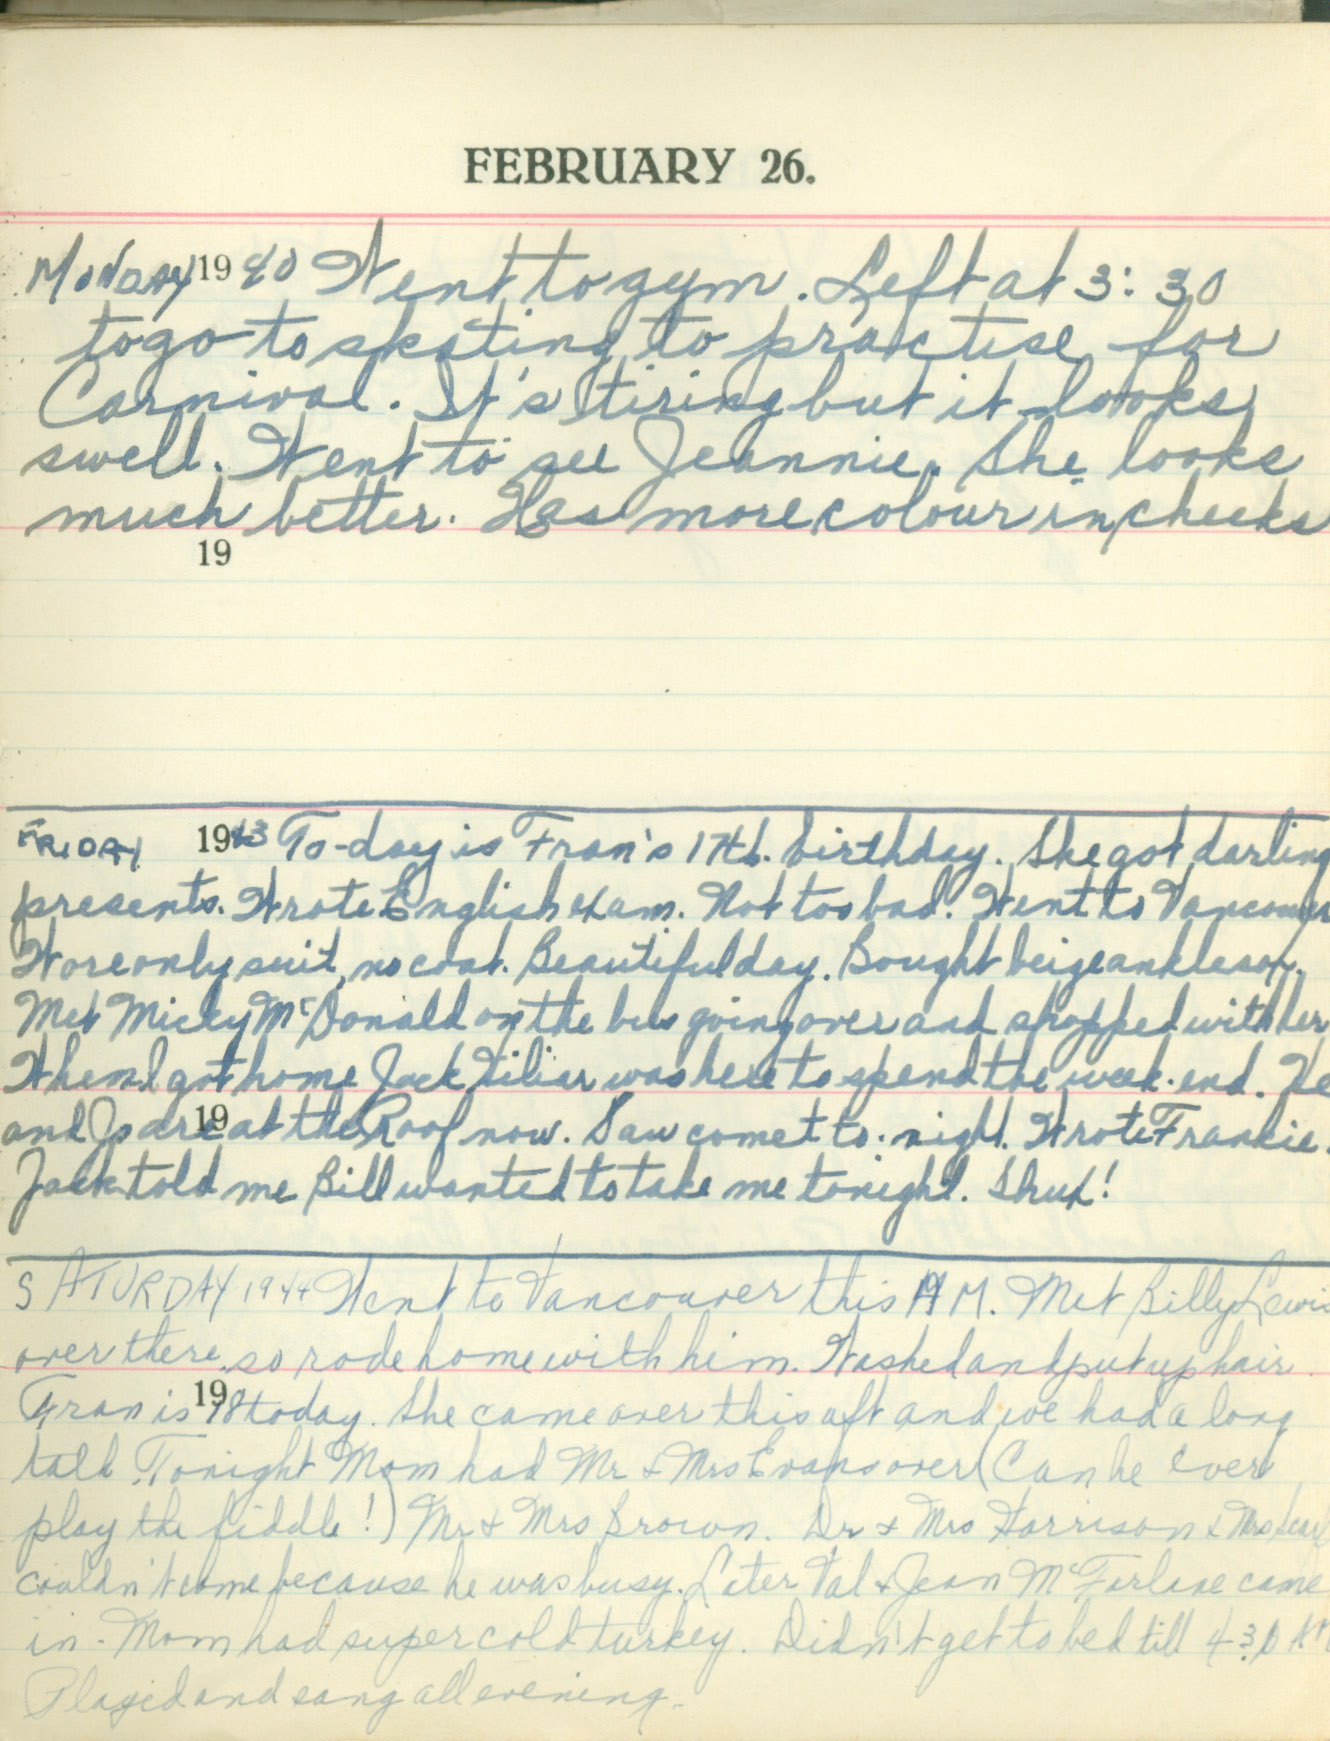 FEBRUARY 26.
MONDAY 1940 Went to gym. Left at 3:30
to go to skating to practise for
Carnival. It's tiring but it looks
swell. Went to see Jeannie. She looks
much better. Has more colour in cheeks
19
FRIDAY 1943 To-day is Fran's 17th. birthday. She got darling
presents. Wrote English exam. Not too bad. Went to Vancouver
Wore only suit, no coat. Beautiful day. Bought beige ankle sox.
Met Micky McDonald on the bus going over and shopped with her
When I got home Jack was here to spend the week-end. He
and Jo are at the Roof now. Saw comet to-night. Wrote Frankie.
19
Jack told me Bill wanted to take me tonight. Shux!
SATURDAY 1944 Went to Vancouver this AM. Met Billy Lewis
over there so rode home with him. Washed and put up hair.
19
Fran is 18 today. She came over this aft and we had a long
talk. Tonight Mom had Mr & Mrs Evans over (Can he ever
play the fiddle!) Mr & Mrs Brown. Dr & Mrs Harrison & Mrs
couldn't come because he was busy. Later Val & Jean McFarlane came
in. Mom had super cold turkey. Didn't get to bed till 4:30 AM
Played and sang all evening.